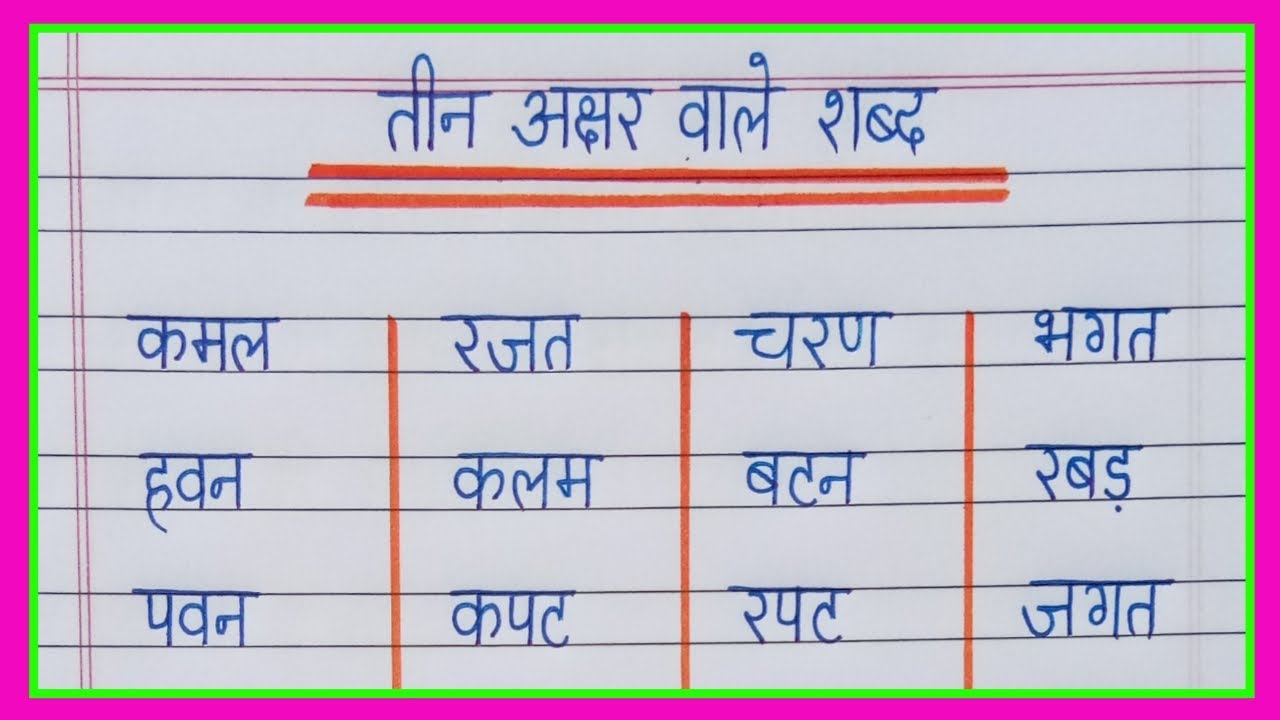 तीन अक्षर वाले शब्द
कमल रजत चरण भगत
हवन कलम बटन रबड़
पवन कपट रपट जगत